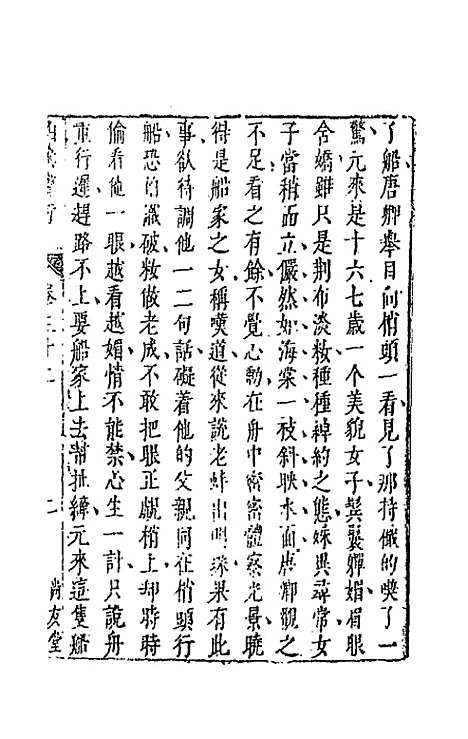 了船唐卿舉目向梢頭一看見了那持檝的喫了一
驚元來是十六七歲一个美貌女子鬂鬟軃媚眉眼
含嬌雖只是荆布淡粧種種綽約之態殊異尋常女
子當稍而立儼然如海棠一枝斜映水面唐卿觀之
不足看之有餘不覺心動在舟中密密體察光景曉
得是船家之女稱嘆道從來說老蚌出明珠果有此
事欲待調他一二句話礙着他的父親同在梢頭行
船恐怕識破粧做老成不敢把眼正覷梢上却時時
偷看他一眼越看越媚情不能禁心生一計只說舟
重行遲趕路不上要船家上去幫扯縴元來這隻船
卷三十二　二　尚友堂